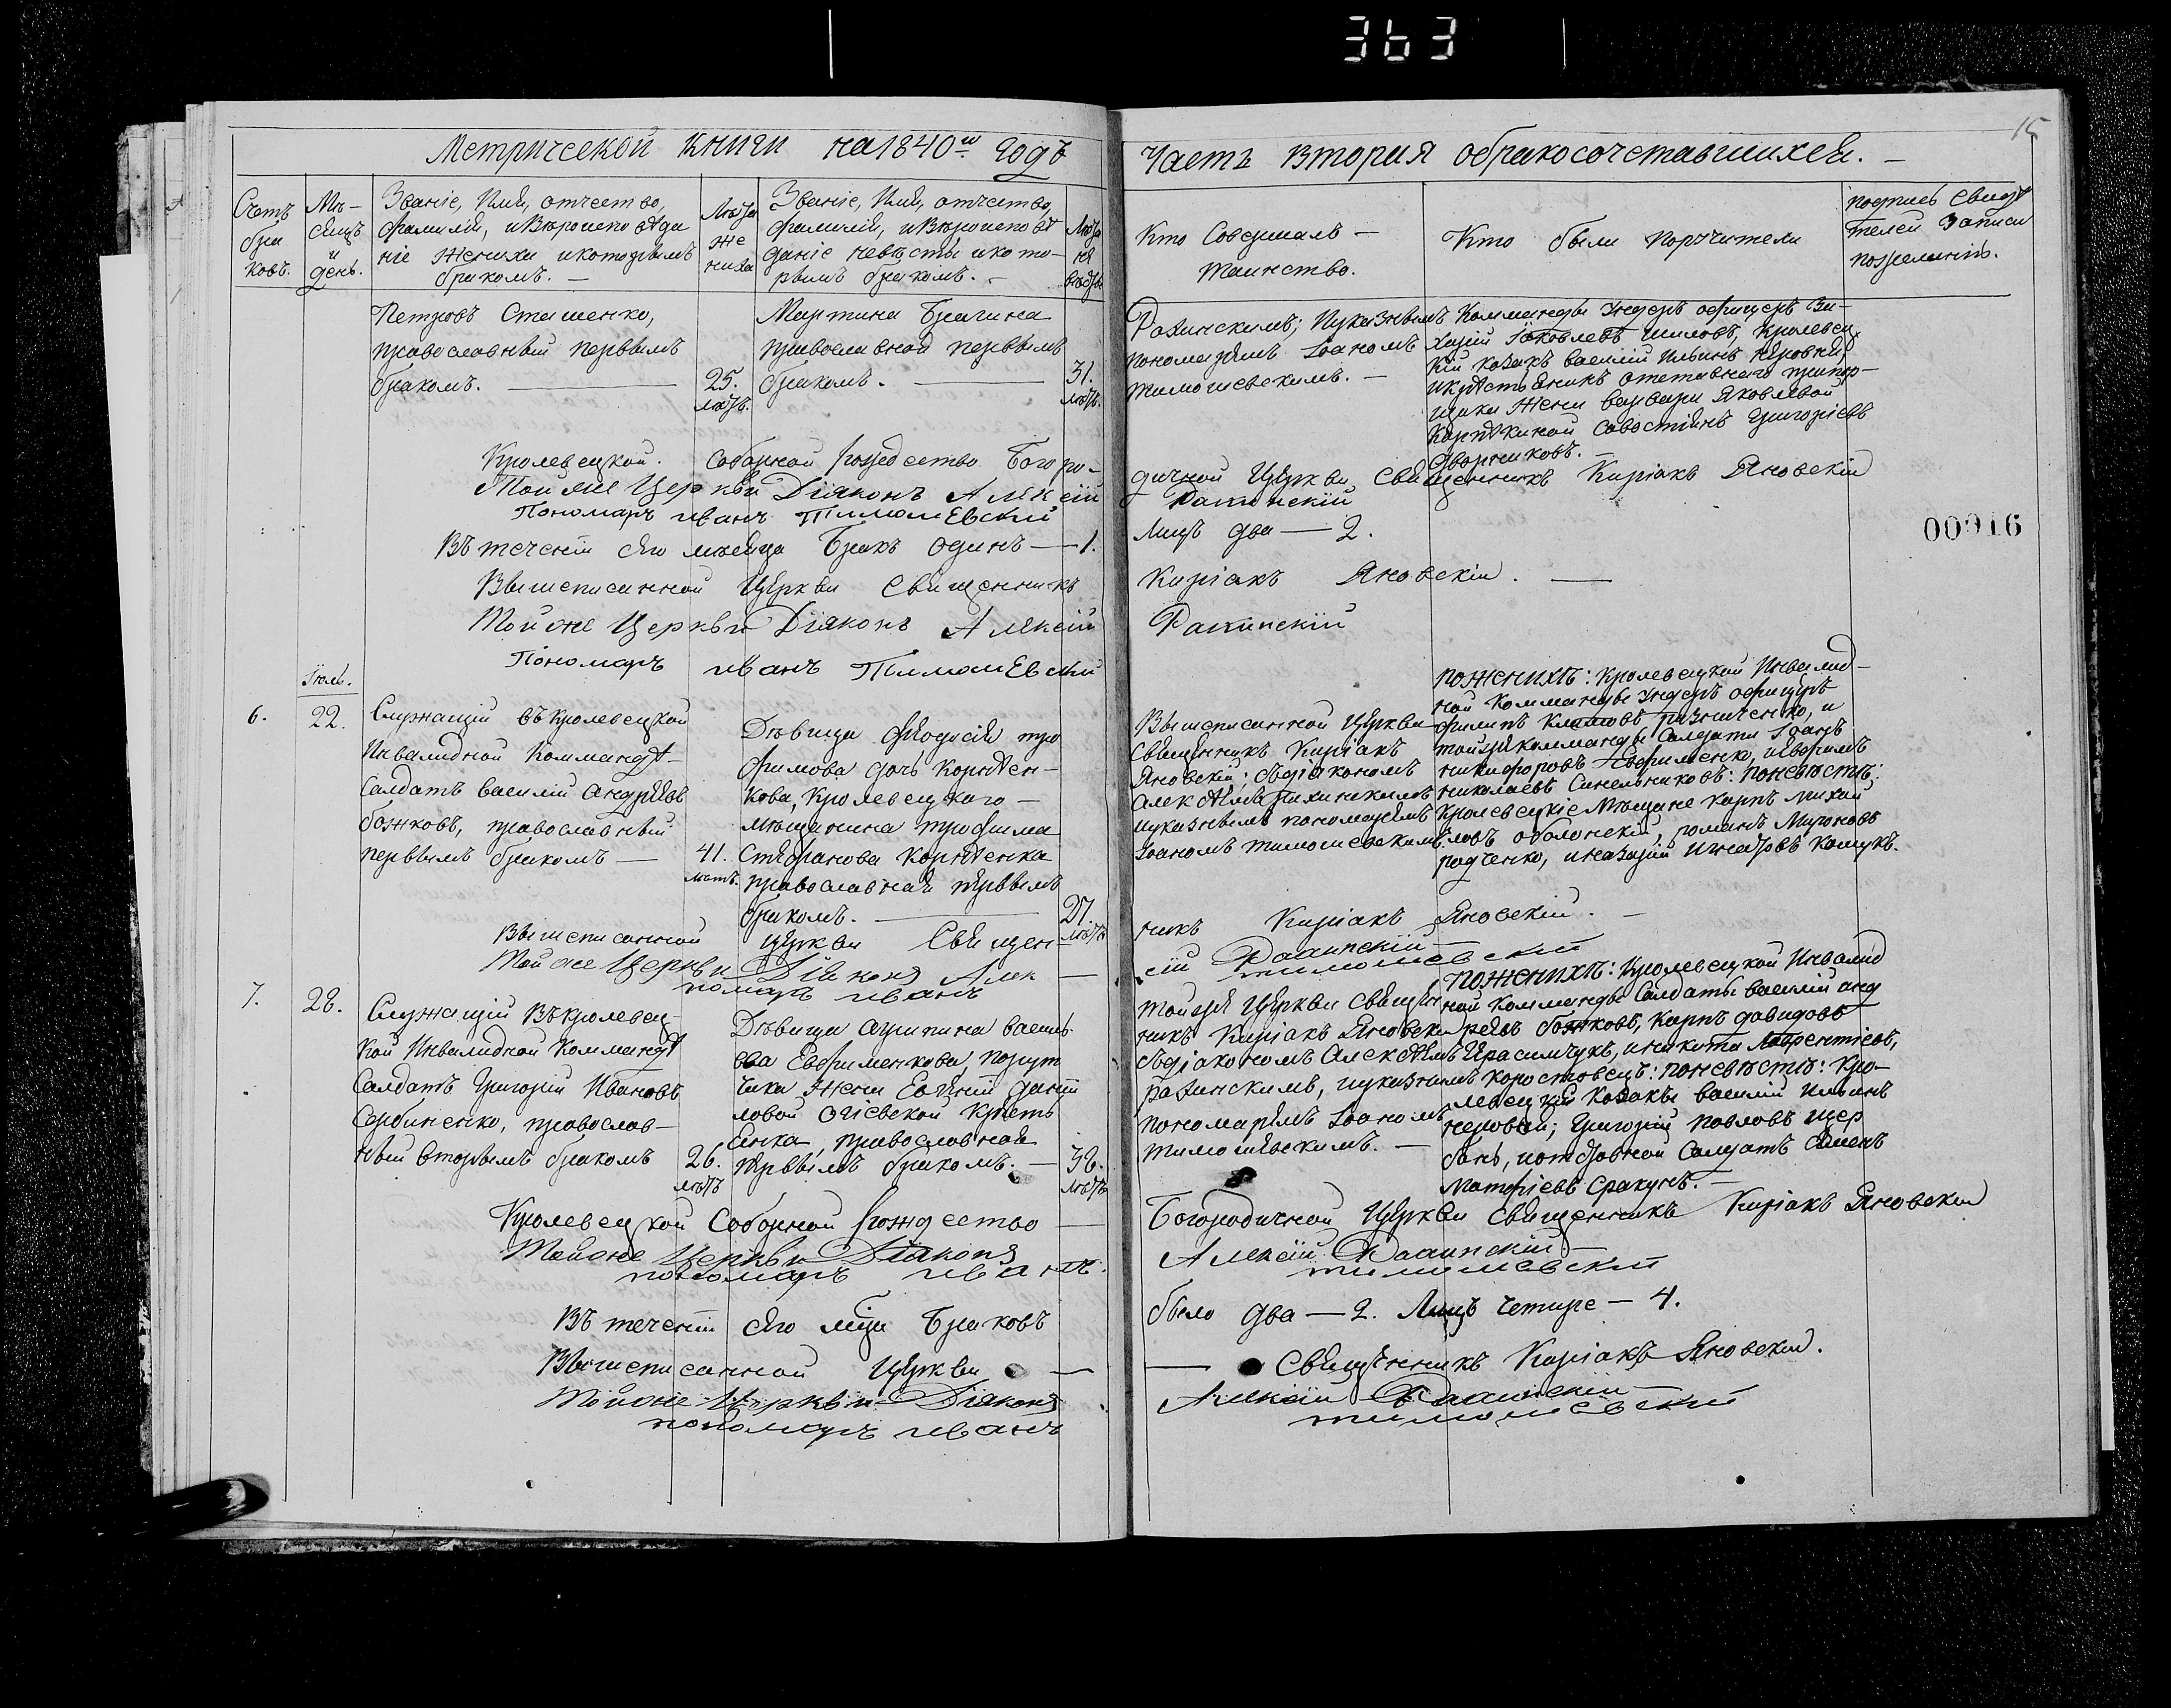 363
Метрической книги на 1840й годъ
Часть вторая обракосочетавшихся.
15
Счетъ браковъ.
Мѣсяцъ и день.
Званіе, Имя, отчество,
фамилія, и Вѣроисповѣда
ніе жениха и которымъ
бракомъ. —
Лѣта жениха
Званіе, Имя, отчество,
фамилія, и Вѣроисповѣ
даніе невѣсты и кото-
рымъ бракомъ. —
Лѣта невѣсты
Кто Совершалъ —
таинство.
Кто были поручители
подпись Свидѣ
телей Записи
по желанію.
Петровъ Сташенко,
православный первымъ
бракомъ. —
25.
лѣтъ.
Мартина Брагина
православной первымъ
бракомъ. —
31.
лѣтъ.
Рахинскимъ; Иуказнымъ
пономаремъ Іоаномъ
тимошевскимъ. —
Комманды Ундеръ офицеръ За-
харій Іаковлевъ шиловъ, Кролевец
кій козакъ василій Ильинъ
икрестьянинъ отставнаго прапор-
щика жены варвары Яковлевой
Савостіянъ Григоріевъ
дворниковъ. —
Кролевецкой Соборной Рождество Богоро-
дичной Церкви Священникъ Киріакъ Яновскій
Той же Церкви Діяконъ Алексій
Рахинскій
Пономарь иванъ Тимошевский
Въ теченіи сего мѣсяца Бракъ одинъ — 1.
Лицъ два — 2.
00916
Вышеписанной Церкви Священникъ
Киріакъ Яновскій. —
Той же Церкви Діяконъ Алексій
Рахинскій
Пономарь иванъ Тимошевский
Іюль.
6.
22.
Служащій въ кролевецкой
Инвалидной Коммандѣ —
Салдатъ василій Андреевъ
божковъ, православный
первымъ бракомъ —
41.
лѣтъ.
Дѣвица Феодосія тро
фимова дочь Корнѣен-
кова, Кролевецкого —
мѣщанина трофима
Стефанова Корнѣенка
православная первымъ
бракомъ. —
27.
лѣтъ
Вышеписанной Церкви
Священникъ Киріакъ
Яновскій; съдіакономъ
Алексѣемъ Рахинскимъ
иуказнымъ пономаремъ
Іоаномъ тимошевскимъ.
поженихѣ: Кролевецкой Инвалид-
ной Комманды Ундеръ офицеръ
филипъ Климовъ и
тойже комманды Салдаты Іоанъ
никифоровъ Евфименко, иефимъ
николаевъ Синельниковъ: поневѣстѣ:
Кролевецкіе Мѣщане Карпъ михай
ловъ оболонскій, романъ Мироновъ
родченко, иназарій Игнатовъ
Вышеписанной Церкви Священ-
никъ Киріакъ Яновскій. —
Той же Церкви Діяконъ Алек —
сій Рахинскій
номарь иванъ
тимошевский
7.
28.
Служащій Въ кролевец-
кой Инвалидной Коммандѣ
Салдатъ Григорій Ивановъ
Сербиненко, православ-
ный вторымъ бракомъ
26.
лѣтъ
Дѣвица агрипина василь
ева Евфименкова, порут
чика жены Евгеніи даніи
ловой Огіевской крестъ
янка, православная
первымъ бракомъ. —
32.
лѣтъ
тойже Церкви Священ
никъ Киріакъ Яновскій
съдіакономъ Алексѣемъ
рахинскимъ, иуказнымъ
пономаремъ Іоаномъ
тимошевскимъ. —
поженихѣ: Кролевецкой Инвалид
ной Комманды Салдаты василій анд
реевъ божковъ, Карпъ давидовъ
Герасимчукъ, иникита Лаврентіевъ
коростовецъ: поневѣстѣ: Кро-
левецкій Козакъ василій Ильинъ
Григорій павловъ щер
бань, иотставной Салдатъ Семенъ
матфіевъ Сракунъ. —
Кролевецкой Соборной Рождество —
Богородичной Церкви Священникъ Киріакъ Яновскій
Тойже Церкви Діяконъ
Алексій Рахинскій
пономарь иванъ.
тимошевский
Въ теченіи сего мѣца Браковъ
было два — 2. Лицъ Четыре — 4.
Вышеписанной Церкви —
— Священникъ Киріакъ Яновскій.
Тойже Церкви Діяконъ
Алексій Рахинскій
пономарь иванъ
тимошевский